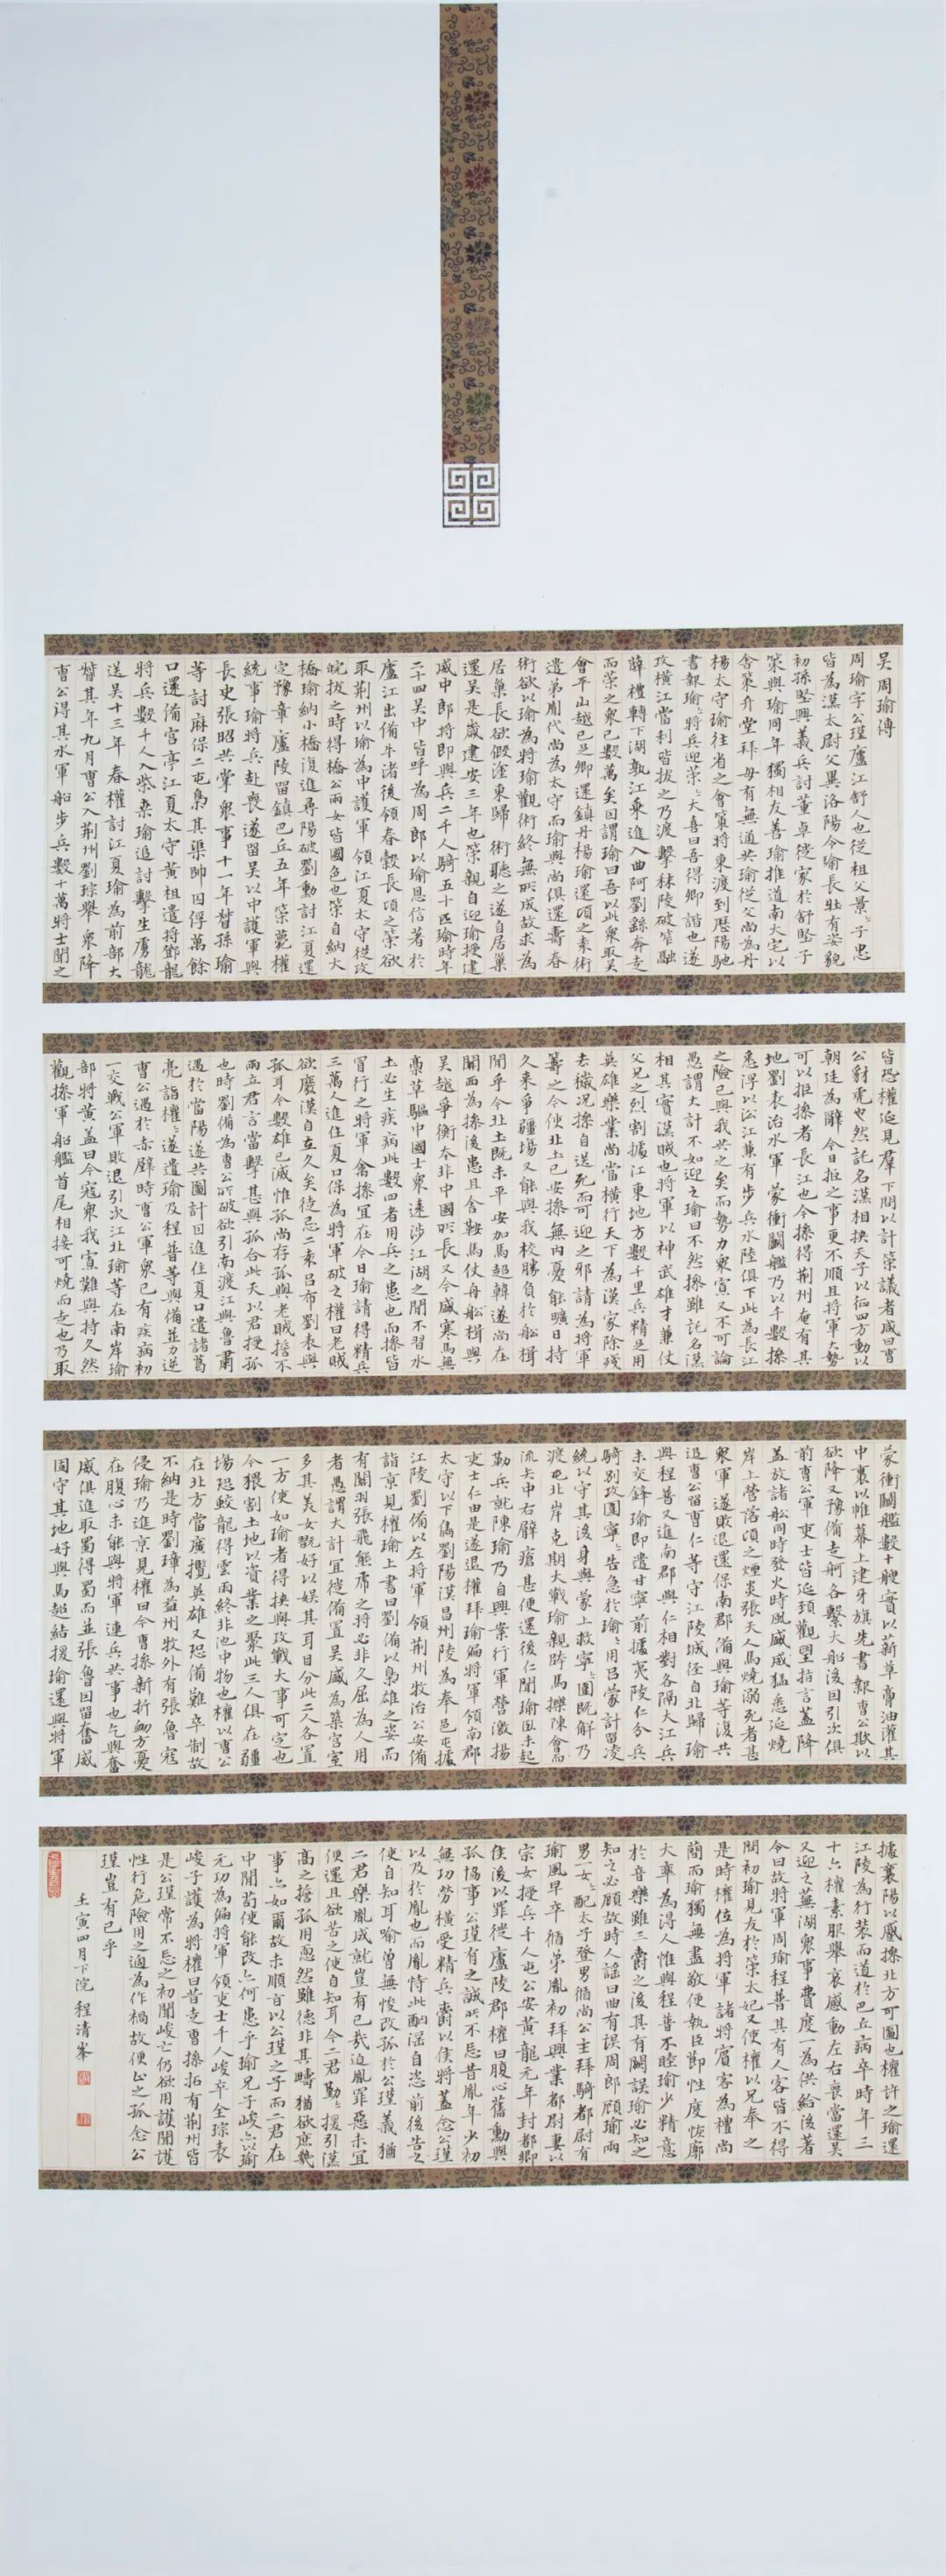 吳周瑜傳
周瑜字公瑾廬江舒人也從祖父景〻子忠
皆為漢太尉父異洛陽令瑜長壯有姿貌
初孫堅興義兵討董卓徙家於舒堅子
策與瑜同年獨相友善瑜推道南大宅以
舍策升堂拜母有無通共瑜從父尚為丹
楊太守瑜往省之會策將東渡到歷陽馳
書報瑜〻將兵迎策〻大喜曰吾得卿諧也遂
攻橫江當利皆拔之乃渡擊秣陵破笮融
薛禮轉下湖孰江乘進入曲阿劉繇奔走
而策之衆已數萬矣因謂瑜曰吾以此衆取吳
會平山越已足卿還鎮丹楊瑜還頃之袁術
遣弟胤代尚為太守而瑜與尚俱還壽春
術欲以瑜為將瑜觀術終無所成故求為
居巢長欲假塗東歸術聽之遂自居巢
還吳是歲建安三年也策親自迎瑜授建
威中郎將即與兵二千人騎五十匹瑜時年
二十四吳中皆呼為周郎以瑜恩信著於
廬江出備牛渚後領春穀長頃之策欲
取荊州以瑜為中護軍領江夏太守從攻
皖拔之時得橋公兩女皆國色也策自納大
橋瑜納小橋復進尋陽破劉勳討江夏還
定豫章廬陵留鎮巴丘五年策薨權
統事瑜將兵赴喪遂留吳以中護軍與
長史張昭共掌衆事十一年督孫瑜
等討麻保二屯梟其渠帥囚俘萬餘
口還備宮亭江夏太守黃祖遣將鄧龍
將兵數千人入柴桑瑜追討擊生虜龍
送吳十三年春權討江夏瑜為前部大
督其年九月曹公入荊州劉琮舉衆降
曹公得其水軍船步兵數十萬將士聞之
皆恐權延見羣下問以計策議者咸曰曹
公豺虎也然託名漢相挾天子以征四方動以
朝廷為辭今日拒之事更不順且將軍大勢
可以拒操者長江也今操得荊州奄有其
地劉表治水軍蒙衝鬭艦乃以千數操
悉浮以沿江兼有步兵水陸俱下此為長江
之險已與我共之矣而勢力衆寡又不可論
愚謂大計不如迎之瑜曰不然操雖託名漢
相其實漢賊也將軍以神武雄才兼仗
父兄之烈割據江東地方數千里兵精足用
英雄樂業尚當橫行天下為漢家除殘
去穢況操自送死而可迎之邪請為將軍
籌之今使北土已安操無內憂能曠日持
久來爭疆場又能與我校勝負於船楫
間乎今北土既未平安加馬超韓遂尚在
關西為操後患且舍鞍馬仗舟船楫與
吳越爭衡本非中國所長又今盛寒馬無
藁草驅中國士衆遠涉江湖之間不習水
土必生疾病此數四者用兵之患也而操皆
冒行之將軍禽操宜在今日瑜請得精兵
三萬人進住夏口保為將軍破之權曰老賊
欲廢漢自立久矣徒忌二袁呂布劉表與
孤耳今數雄已滅惟孤尚存孤與老賊誓不
兩立君言當擊甚與孤合此天以君授孤
也時劉備為曹公所破欲引南渡江與魯肅
遇於當陽遂共圖計因進住夏口遣諸葛
亮詣權〻遂遣瑜及程普等與備并力逆
曹公遇於赤壁時曹公軍衆已有疾病初
一交戰公軍敗退引次江北瑜等在南岸瑜
部將黃蓋曰今寇衆我寡難與持久然
觀操軍船艦首尾相接可燒而走也乃取
蒙衝鬭艦數十艘實以薪草膏油灌其
中裹以帷幕上建牙旗先書報曹公欺以
欲降又豫備走舸各繫大船後因引次俱
前曹公軍吏士皆延頸觀望指言蓋降
蓋放諸船同時發火時風盛猛悉延燒
岸上營落頃之煙炎張天人馬燒溺死者甚
衆軍遂敗退還保南郡備與瑜等復共
追曹公留曹仁等守江陵城徑自北歸瑜
與程普又進南郡與仁相對各隔大江兵
未交鋒瑜即遣甘寧前據夷陵仁分兵
騎別攻圍寧〻告急於瑜〻用呂蒙計留凌
統以守其後身與蒙上救寧〻圍既解乃
渡屯北岸克期大戰瑜親跨馬擽陳會為
流矢中右脅瘡甚便還後仁聞瑜臥未起
勒兵就陳瑜乃自興案行軍營激揚
吏士仁由是遂退權拜瑜偏將軍領南郡
太守以下雋劉陽漢昌州陵為奉邑屯據
江陵劉備以左將軍領荊州牧治公安備
詣京見權瑜上書曰劉備以梟雄之姿而
有關羽張飛熊虎之將必非久屈為人用
者愚謂大計宜徙備置吳盛為築宮室
多其美女翫好以娛其耳目分此二人各置
一方使如瑜者得挾與攻戰大事可定也
今猥割土地以資業之聚此三人俱在疆
場恐蛟龍得雲雨終非池中物也權以曹公
在北方當廣攬英雄又恐備難卒制故
不納是時劉璋為益州牧外有張魯寇
侵瑜乃進京見權曰今曹操新折衂方憂
在腹心未能與將軍連兵共事也乞與奮
威俱進取蜀得蜀而並張魯因留奮威
固守其地好與馬超結援瑜還與將軍
據襄陽以蹙操北方可圖也權許之瑜還
江陵為行裝而道於巴丘病卒時年三
十六權素服舉哀感動左右喪當還吳
又迎之蕪湖衆事費度一為供給後著
令曰故將軍周瑜程普其有人客皆不得
問初瑜見友於策太妃又使權以兄奉之
是時權位為將軍諸將賓客為禮尚
簡而瑜獨無盡敬便執臣節性度恢廓
大率為得人惟與程普不睦瑜少精意
於音樂雖三爵之後其有闕誤瑜必知之
知之必顧故時人謠曰曲有誤周郎顧瑜兩
男一女〻配太子登男循尚公主拜騎都尉有
瑜風早卒循弟胤初拜興業都尉妻以
宗女授兵千人屯公安黃龍元年封都鄉
侯後以罪徙廬陵郡權曰腹心舊勳與
孤協事公瑾有之誠所不忘昔胤年少初
無功勞橫受精兵爵以侯將蓋念公瑾
以及於胤也而胤恃此酗淫自恣前後告之
使自知耳喻曾無悛改孤於公瑾義猶
二君樂胤成就豈有已哉迫胤罪惡未宜
便還且欲苦之使自知耳今二君勤〻援引漢
高之誓孤用恧然雖德非其疇猶欲庶幾
事亦如爾故未順旨以公瑾之子而二君在
中間苟使能改亦何患乎瑜兄子峻亦以瑜
元功為偏將軍領吏士千人峻卒全琮表
峻子護為將權曰昔走曹操拓有荊州皆
是公瑾常不忘之初聞峻亡仍欲用護聞護
性行危險用之適為作禍故便止之孤念公
瑾豈有已乎
壬寅四月下浣程清峯